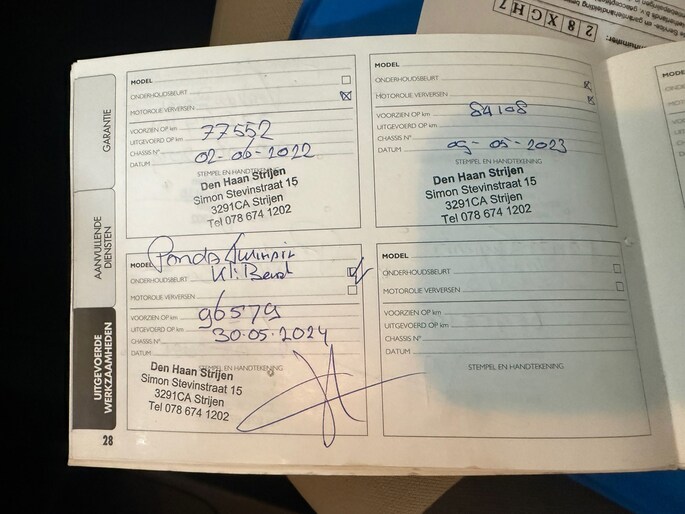 GARANTIE
AANVULLENDE
DIENSTEN
UITGEVOERDE
WERKZAAMHEDEN
28
MODEL
ONDERHOUDSBEURT
MOTOROLIE VERVERSEN
VOORZIEN OP km
77552
UITGEVOERD OP km
CHASSIS N°
02-06-2022
DATUM
STEMPEL EN HANDTEKENING
Den Haan Strijen
Simon Stevinstraat 15
3291CA Strijen
Tel 078 674 1202
MODEL
ONDERHOUDSBEURT
MOTOROLIE VERVERSEN
84108
VOORZIEN OP km
UITGEVOERD OP km
CHASSIS N°
09-05-2023
DATUM
STEMPEL EN HANDTEKENING
Den Haan Strijen
Simon Stevinstraat 15
3291CA Strijen
Tel 078 674 1202
MODEL
ONDERHOUDSBEURT
MOTOROLIE VERVERSEN
VOORZIEN OP km
96579
UITGEVOERD OP km
30.05.2024
CHASSIS N°
DATUM
STEMPEL EN HANDTEKENING
Den Haan Strijen
Simon Stevinstraat 15
3291CA Strijen
Tel 078 674 1202
MODEL
ONDERHOUDSBEURT
MOTOROLIE VERVERSEN
VOORZIEN OP km
UITGEVOERD OP km
CHASSIS N°
DATUM
STEMPEL EN HANDTEKENING
28XGH7